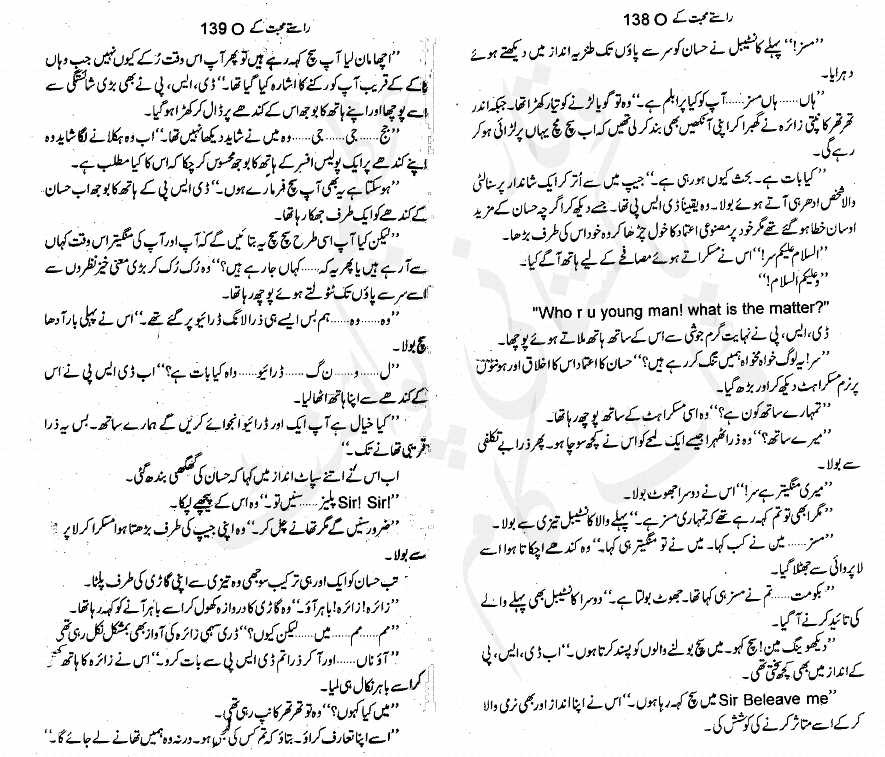 راستے محبت کے O 138
”مسز!“ پہلے کانسٹیبل نے حسان کو سر سے پاؤں تک طنزیہ انداز میں دیکھتے ہوئے
دہرایا۔
”ہاں...... ہاں مسز...... آپ کو کیا پرابلم ہے۔“ وہ تو گویا لڑنے کو تیار کھڑا تھا۔ جبکہ اندر
تھر تھر کانپتی زائرہ نے گھبرا کر اپنی آنکھیں بھی بند کر لی تھیں کہ اب سچ مچ یہاں پر لڑائی ہو کر
رہے گی۔
”کیا بات ہے۔ بحث کیوں ہو رہی ہے۔“ جیپ میں سے اُتر کر ایک شاندار پرسنالٹی
والا شخص ادھر ہی آتے ہوئے بولا۔ وہ یقیناً ڈی ایس پی تھا۔ جسے دیکھ کر اگرچہ حسان کے مزید
اوسان خطا ہو گئے تھے مگر خود پر مصنوعی اعتماد کا خول چڑھا کر وہ خود اس کی طرف بڑھا۔
”السلام علیکم سر!“ اس نے مسکراتے ہوئے مصافحے کے لیے ہاتھ آگے کیا۔
”وعلیکم السلام!“
"Who r u young man! what is the matter?"
ڈی، ایس، پی نے نہایت گرم جوشی سے اس کے ساتھ ہاتھ ملاتے ہوئے پوچھا۔
”سر! یہ لوگ خواہ مخواہ ہمیں تنگ کر رہے ہیں؟“ حسان کا اعتماد اس کا اخلاق اور ہونٹوں
پر نرم مسکراہٹ دیکھ کر اور بڑھ گیا۔
”تمہارے ساتھ کون ہے؟“ وہ اسی مسکراہٹ کے ساتھ پوچھ رہا تھا۔
”میرے ساتھ؟“ وہ ذرا ٹھہرا جیسے ایک لمحے کو اس نے کچھ سوچا ہو۔ پھر ذرا بے تکلفی
سے بولا۔
”میری منگیتر ہے سر!“ اس نے دوسرا جھوٹ بولا۔
”مگر ابھی تو تم کہہ رہے تھے کہ تمہاری مسز ہے۔“ پہلے والا کانسٹیبل تیزی سے بولا۔
”مسز...... میں نے کب کہا۔ میں نے تو منگیتر ہی کہا۔“ وہ کندھے اچکاتا ہوا اسے
لاپروائی سے جھٹلا گیا۔
”بکو مت...... تم نے مسز ہی کہا تھا۔ جھوٹ بولتا ہے۔“ دوسرا کانسٹیبل بھی پہلے والے
کی تائید کرنے آ گیا۔
”دیکھو ینگ مین! سچ کہو۔ میں سچ بولنے والوں کو پسند کرتا ہوں۔“ اب ڈی، ایس، پی
کے انداز میں بھی کچھ سختی تھی۔
”Sir Beleave me میں سچ کہہ رہا ہوں۔“ اس نے اپنا انداز اور بھی نرمی والا
کر کے اسے متاثر کرنے کی کوشش کی۔
راستے محبت کے O 139
”اچھا مان لیا آپ سچ کہہ رہے ہیں تو پھر آپ اس وقت رُکے کیوں نہیں جب وہاں
ناکے کے قریب آپ کو رکنے کا اشارہ کیا گیا تھا۔“ ڈی، ایس، پی نے بھی بڑی شائستگی سے
اسے پوچھا اور اپنے ہاتھ کا بوجھ اس کے کندھے پر ڈال کر کھڑا ہو گیا۔
”جج...... جی...... جی...... وہ میں نے شاید دیکھا نہیں تھا۔“ اب وہ ہکلانے لگا شاید وہ
اپنے کندھے پر ایک پولیس افسر کے ہاتھ کا بوجھ محسوس کر چکا کہ اس کا کیا مطلب ہے۔
”ہو سکتا ہے یہ بھی آپ سچ فرما رہے ہوں۔“ ڈی ایس پی کے ہاتھ کا بوجھ اب حسان
کے کندھے کو ایک طرف جھکا رہا تھا۔
”لیکن کیا آپ اسی طرح سچ سچ یہ بتائیں گے کہ آپ اور آپ کی منگیتر اس وقت کہاں
سے آ رہے ہیں یا پھر یہ کہ...... کہاں جا رہے ہیں؟“ وہ رُک رُک کر بڑی معنی خیز نظروں سے
اسے سر سے پاؤں تک ٹٹولتے ہوئے پوچھ رہا تھا۔
”وہ...... وہ...... ہم بس ایسے ہی ذرا لانگ ڈرائیو پر گئے تھے۔“ اس نے پہلی بار آدھا
سچ بولا۔
”ل...... و...... نگ...... ڈرائیو...... واہ کیا بات ہے؟“ اب ڈی ایس پی نے اس
کے کندھے سے اپنا ہاتھ اٹھا لیا۔
”کیا خیال ہے آپ ایک اور ڈرائیو انجوائے کریں گے ہمارے ساتھ۔ بس یہ ذرا
قریبی تھانے تک۔“
اب اس نے اتنے سپاٹ انداز میں کہا کہ حسان کی گھگھی بندھ گئی۔
”Sir! Sir! پلیز...... سنیں تو۔“ وہ اس کے پیچھے لپکا۔
”ضرور سنیں گے مگر تھانے چل کر۔“ وہ اپنی جیپ کی طرف بڑھتا ہوا مسکرا کر لاپر
سے بولا۔
تب حسان کو ایک اور ہی ترکیب سوجھی وہ تیزی سے اپنی گاڑی کی طرف پلٹا۔
”زائرہ! زائرہ! باہر آؤ۔“ وہ گاڑی کا دروازہ کھول کر اسے باہر آنے کو کہہ رہا تھا۔
”مم...... مم...... میں...... لیکن کیوں؟“ ڈری سہمی زائرہ کی آواز بھی بمشکل نکل رہی تھی
”آؤ ناں...... اور آ کر ذرا تم ڈی ایس پی سے بات کرو۔“ اس نے زائرہ کا ہاتھ
کر اسے باہر نکال ہی لیا۔
”میں کیا کہوں؟“ وہ تو تھر تھر کانپ رہی تھی۔
”اسے اپنا تعارف کراؤ۔ بتاؤ کہ تم کس کی ہو۔ ورنہ وہ ہمیں تھانے لے جائے گا۔“